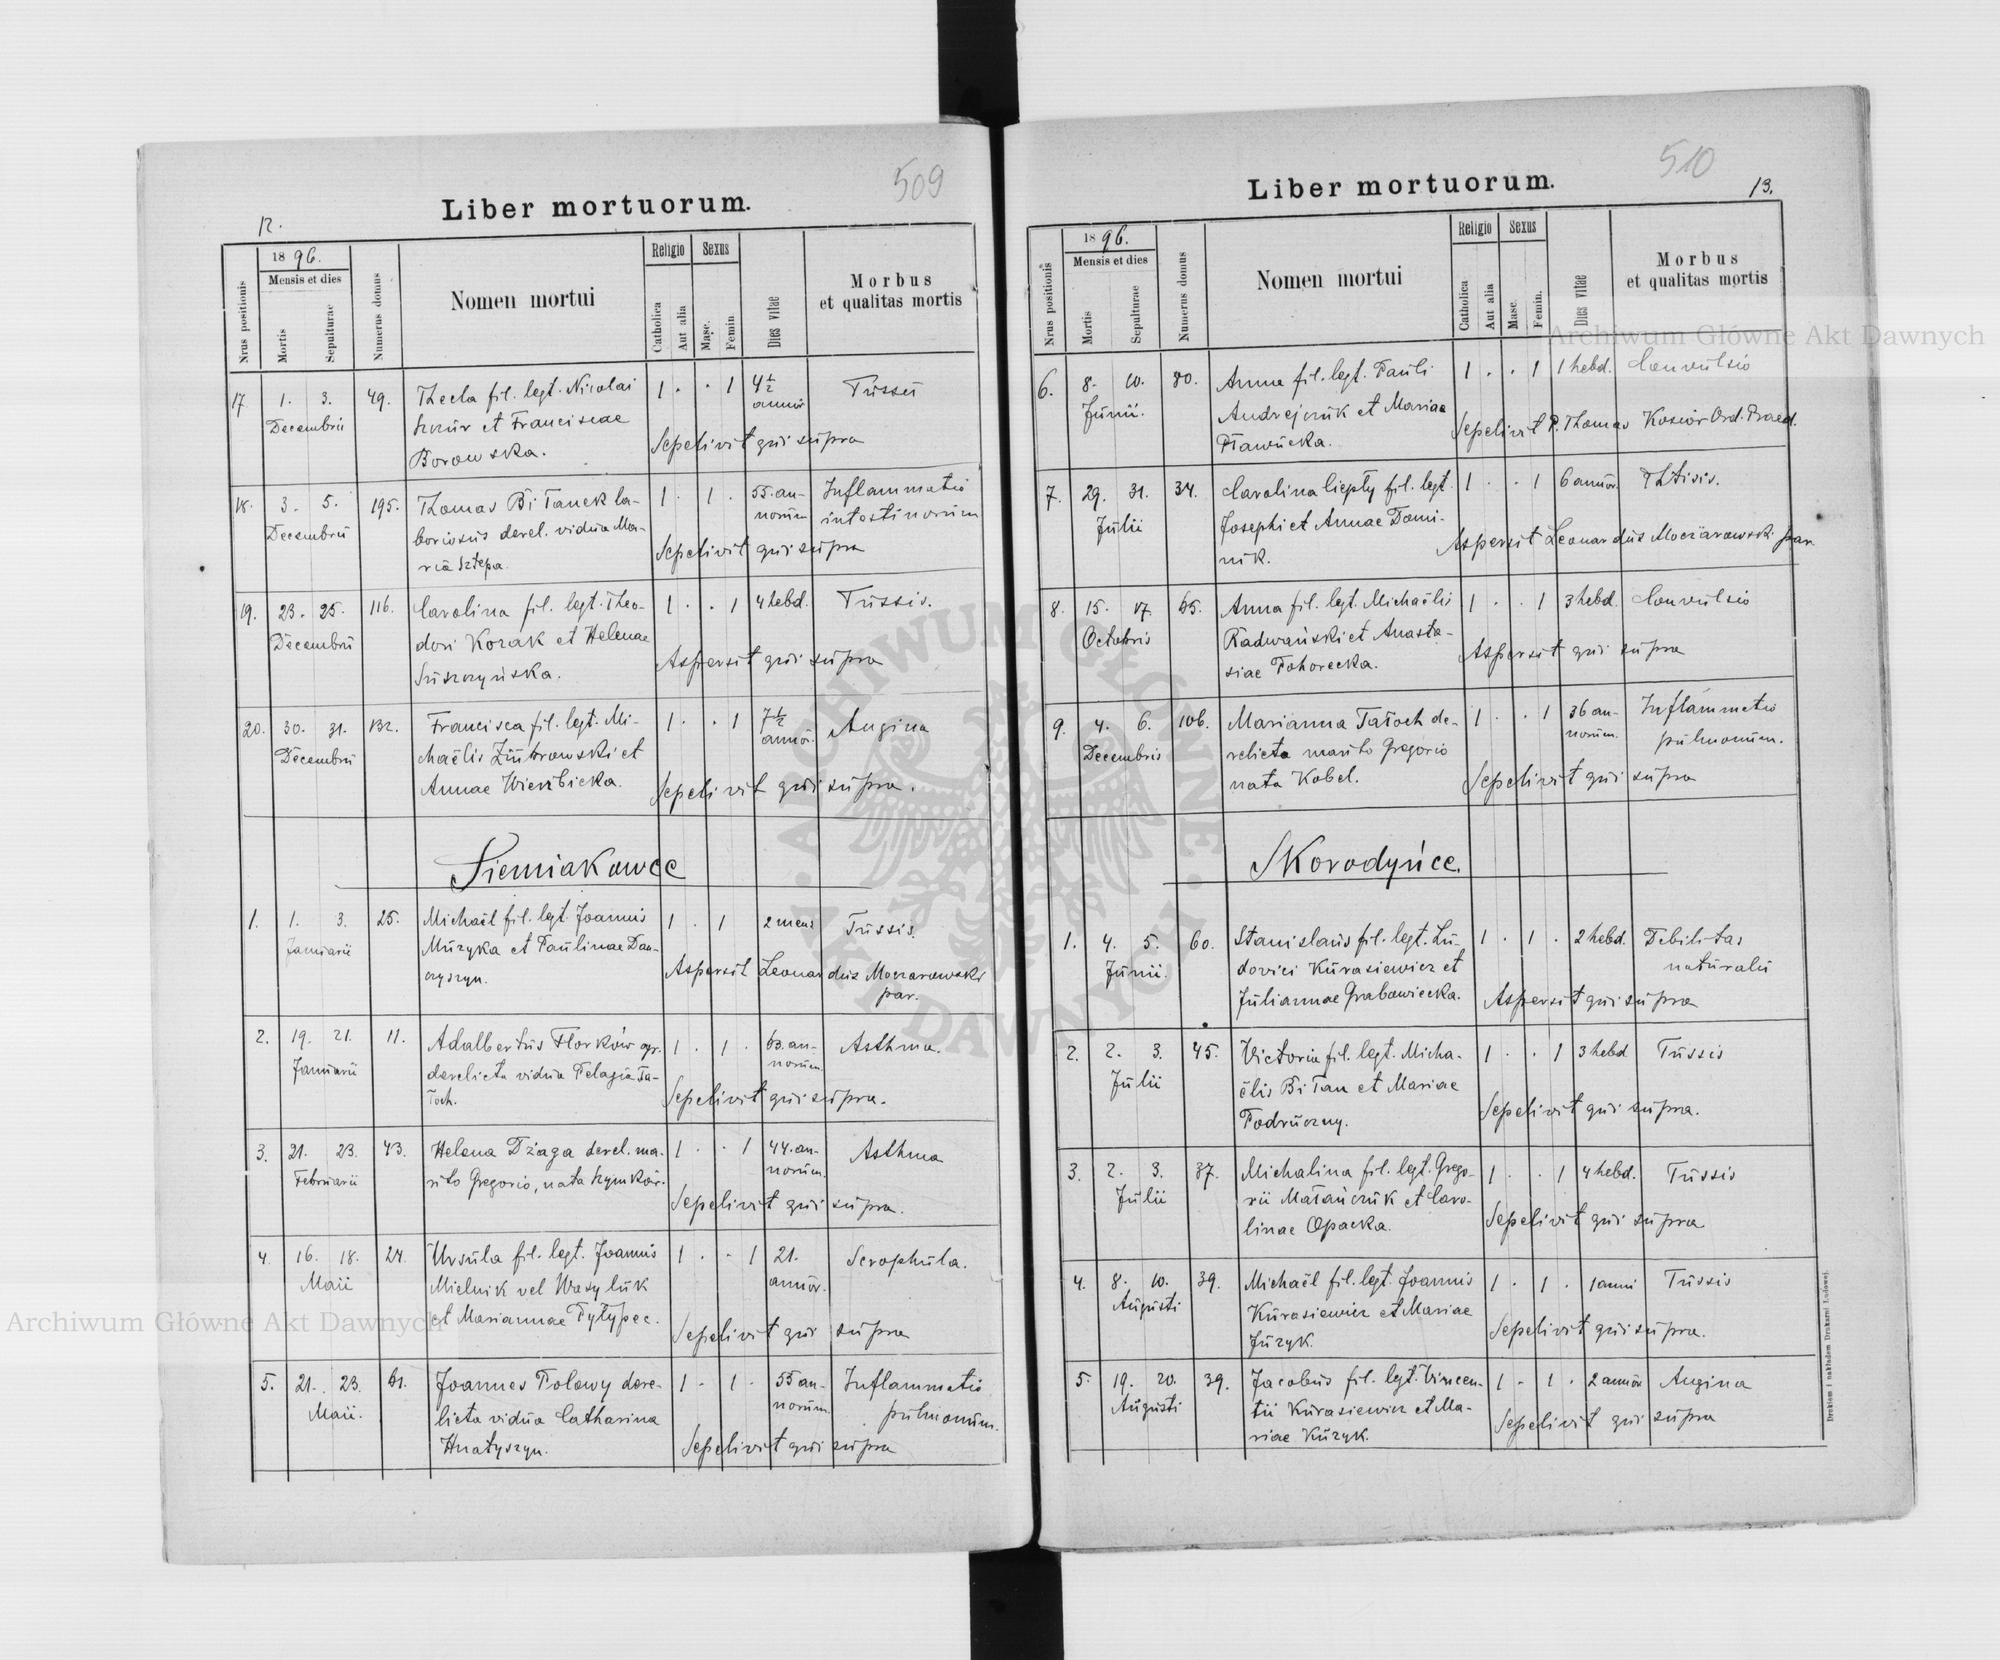 509
Liber mortuorum.
12.
Nrus positionis
1896.
Mensis et dies
Mortis
Sepulturae
Numerus domus
Nomen mortui
Religio
Catholica
Aut alia
Sexus
Masc.
Femin
Dies vitae
Morbus
et qualitas mortis
17 1. 3. 49. Thecla fil. legt. Nicolai 1 . . 1 4½ Tussis
Decembris annor
et Franciscae Sepelivit qui supra
Borowska.
18. 3. 5. 195. Thomas Biłanek la- 1 . 1 . 55 an- Inflammatio
Decembris boriosus derel. vidua Ma- norum intestinorum
ria Sztepa. Sepelivit qui supra
19. 23. 25. 116. Carolina fil. legt. Theo- 1 . . 1 4 hebd. Tussis.
Decembris dori Kozak et Helenae
Suszczyńska. Aspersit qui supra
20. 30. 31. 132. Francisca fil. legt. Mi- 1 . . 1 7½ Angina
Decembris chaëlis Zubrowski et annor.
Annae Wierzbicka. Sepelivit qui supra.
Siemiakowce
1. 1. 3. 25. Michaël fil. lgt. Joannis 1 . 1 2 mens Tussis.
Januarii Muzyka et Paulinae Dan-
czyszyn. Aspersit Leonardus Moczarowski
par.
2. 19. 21. 11. Adalbertus Florków agr. 1 . 1 . 63. an- Asthma.
Januarii derelicta vidua Pelagia Ta- norum
łoch. Sepelivit qui supra.
3. 21. 23. 43. Helena Dżaga derel. ma- 1 . . 1 44. an- Asthma
Februarii rito Gregorio, nata Szymków. norum.
Sepelivit qui supra.
4. 16. 18. 24. Ursula fil. legt. Joannis 1 . . 1 21. Scrophula.
Maii Mielnik vel Wasyluk annor.
et Mariannae Pyłypec. Sepelivit qui supra
5. 21. 23. 61. Joannes Polowy dere- 1 . 1 . 55 an- Inflammatio
Maii. licta vidua Catharina norum pulmonum.
Hnatyszyn. Sepelivit qui supra
510
Liber mortuorum.
13.
Nrus positionis
1896.
Mensis et dies
Mortis
Sepulturae
Numerus domus
Nomen mortui
Religio
Catholica
Aut alia
Sexus
Masc.
Femin.
Dies vitae
Morbus
et qualitas mortis
6. 8. 10. 80. Anna fil. legt. Pauli 1 . . 1 1 hebd. Convulsio
Junii. Andrejczuk et Mariae
Pławucka. Sepelivit P. Thomas Kosior Ord. Praed.
7. 29. 31. 34. Carolina Ciepły fil. legt. 1 . . 1 6 annor. Phtisis.
Julii Josephi et Annae Domi-
nik. Aspersit Leonardus Moczarowski par.
8. 15. 17. 65. Anna fil. legt. Michaëlis 1 . . 1 3 hebd. Convulsio
Octobris Radwański et Anasta-
siae Pohorecka. Aspersit qui supra
9. 4. 6. 106. Marianna Tałoch de- 1 . . 1 36 an- Inflammatio
Decembris relicta marito Gregorio norum. pulmonum.
nata Kobel. Sepelivit qui supra
Skorodyńce.
1. 4. 5. 60. Stanislaus fil. legt. Lu- 1 . 1 . 2 hebd. Debilitas
Junii. dovici Kurasiewicz et naturalis
Juliannae Grabowiecka. Aspersit qui supra
2. 2. 3. 45. Victoria fil. legt. Micha- 1 . . 1 3 hebd Tussis
Julii ëlis Biłan et Mariae
Podruczny. Sepelivit qui supra.
3. 2. 3. 37. Michalina fil. legt. Grego- 1 . . 1 4 hebd. Tussis
Julii rii Matańczuk et Caro-
linae Opacka. Sepelivit qui supra
4. 8. 10. 39. Michaël fil. legt. Joannis 1 . 1 . 1 anni Tussis
Augusti Kurasiewicz et Mariae
Juzyk. Sepelivit qui supra.
5. 19. 20. 39. Jacobus fil. lgt. Vincen- 1 . 1 . 2 annor Angina
Augusti tii Kurasiewicz et Ma-
riae Kuzyk. Sepelivit qui supra
Drukiem i nakładem Drukarni Ludowej.
Archiwum Główne Akt Dawnych
Archiwum Główne Akt Dawnych
ARCHIWUM GŁÓWNE AKT DAWNYCH